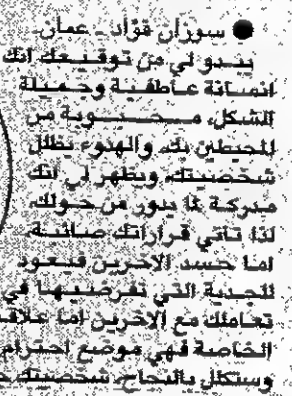 ● سوزان فؤاد - عمان.
يبدو لي من توقيعك انك
انسانة عاطفية وجميلة
الشكل محبوبة من
المحيطين بك، والهدوء يظلل
شخصيتك، ويظهر لي انك
مدركة لما يدور من حولك
لذا تأتي قراراتك صائبة،
اما حسد الآخرين فيعود
للجدية التي تفرضينها في
تعاملك مع الآخرين اما علاقا
الخاصة فهي موضع احترام
وستكلل بالنجاح، شخصيتك